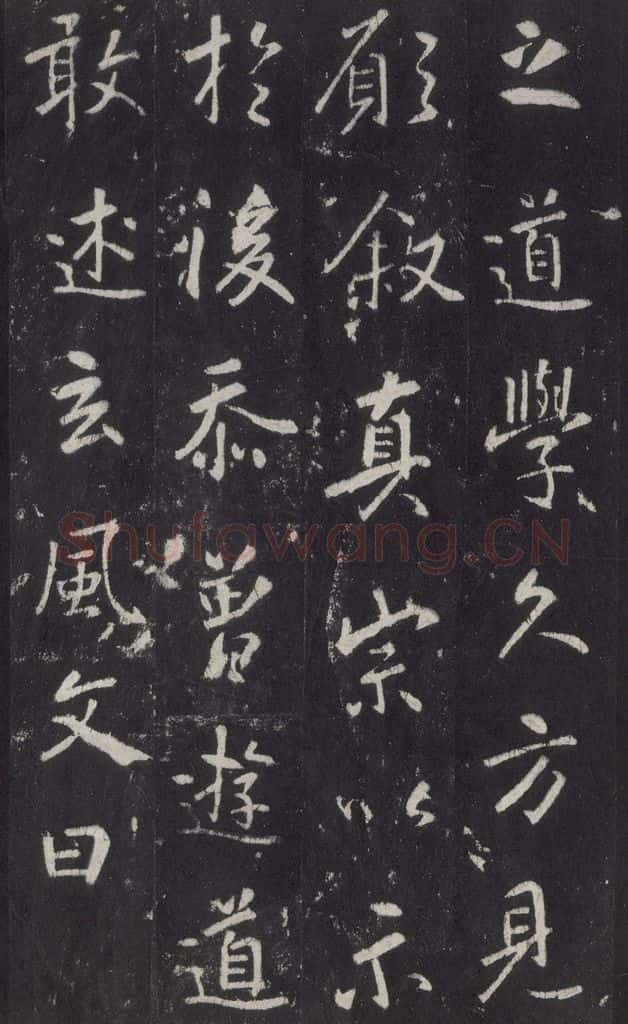 之道學久方見
願敘真宗以示
於後忝曽遊道
敢述玄風文曰
Shufawang.CN